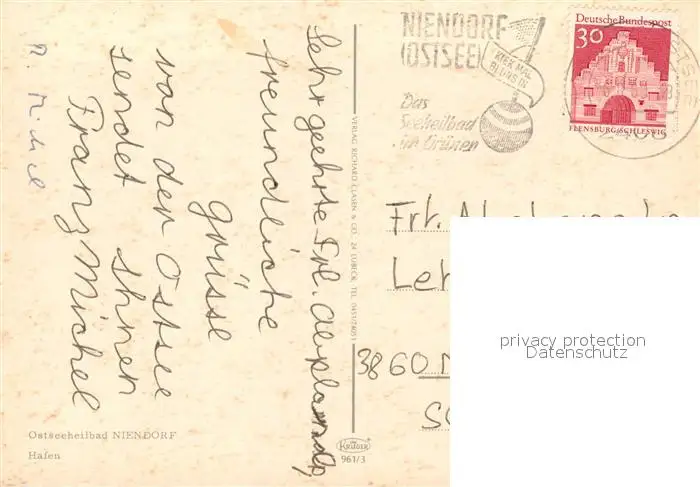 NIENDORF
(OSTSEE)
KIEK MAL
BI UNS IN
Das
Seeheilbad
im Grünen
Deutsche Bundespost
30
FLENSBURG/SCHLESWIG
Sehr geehrte Frl.
freundliche
grüsse
von der Ostsee
sendet Ihnen
Franz Michel
VERLAG RICHARD CLASEN & CO · 24 LÜBECK, TEL. 0451/24053
Frl.
3860
privacy protection
Datenschutz
Ostseeheilbad NIENDORF
Hafen
KRÜGER
961/3